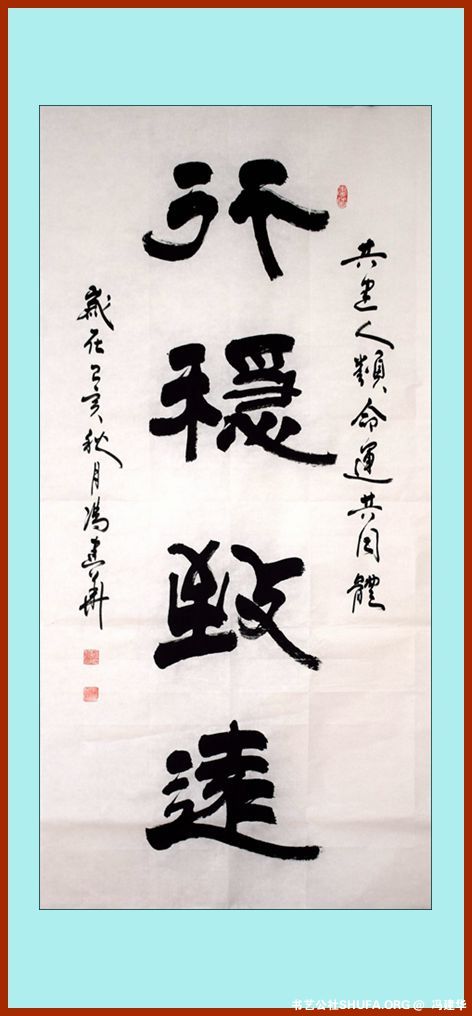 共建人類命運共同體
行穩致遠
歲在己亥秋月馮建華
书艺公社SHUFA.ORG @ 冯建华